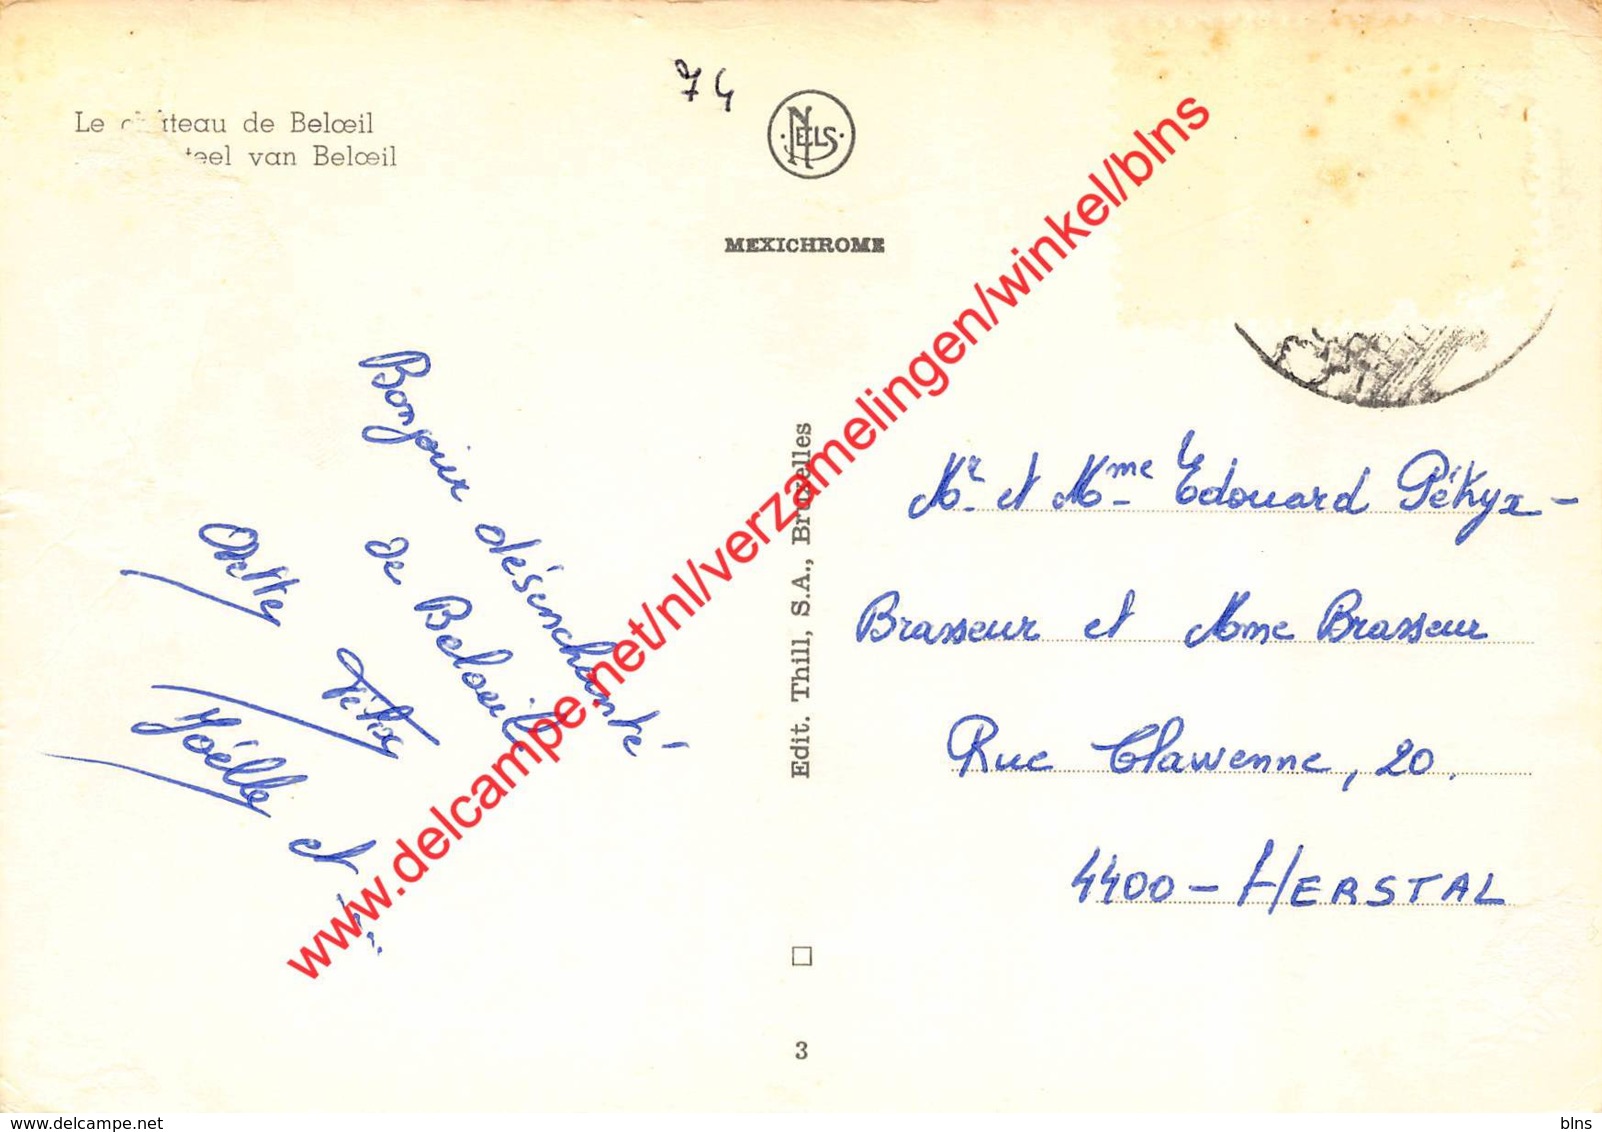 Le château de Belœil
teel van Belœil
74
NELS
MEXICHROME
Edit. Thill, S.A., Bruxelles
3
Bonjour désenchanté
de Beloeil
Odette
Félix
Joëlle et
Mr. et Mme Edouard Pétryx -
Brasseur et Mme Brasseur
Rue Clawenne, 20.
4400 - HERSTAL
www.delcampe.net/nl/verzamelingen/winkel/blns
delcampe.net
blns